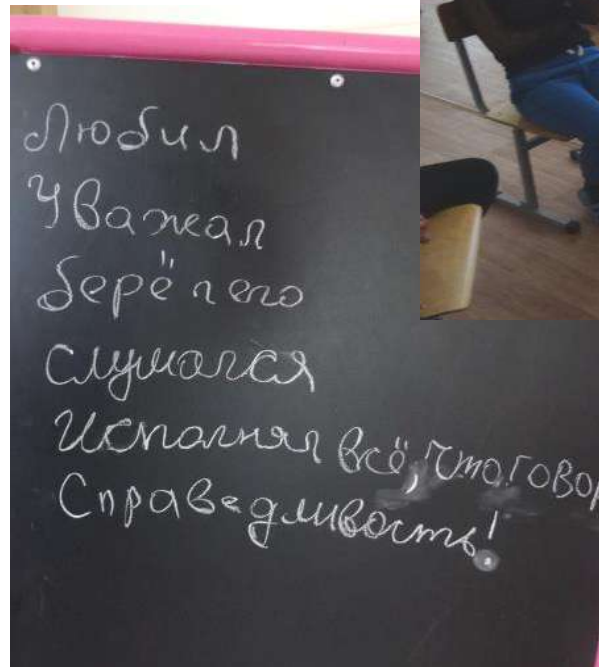 Любил
Уважал
берёг его
слушался
Исполнял всё, что говор
Справедливость!